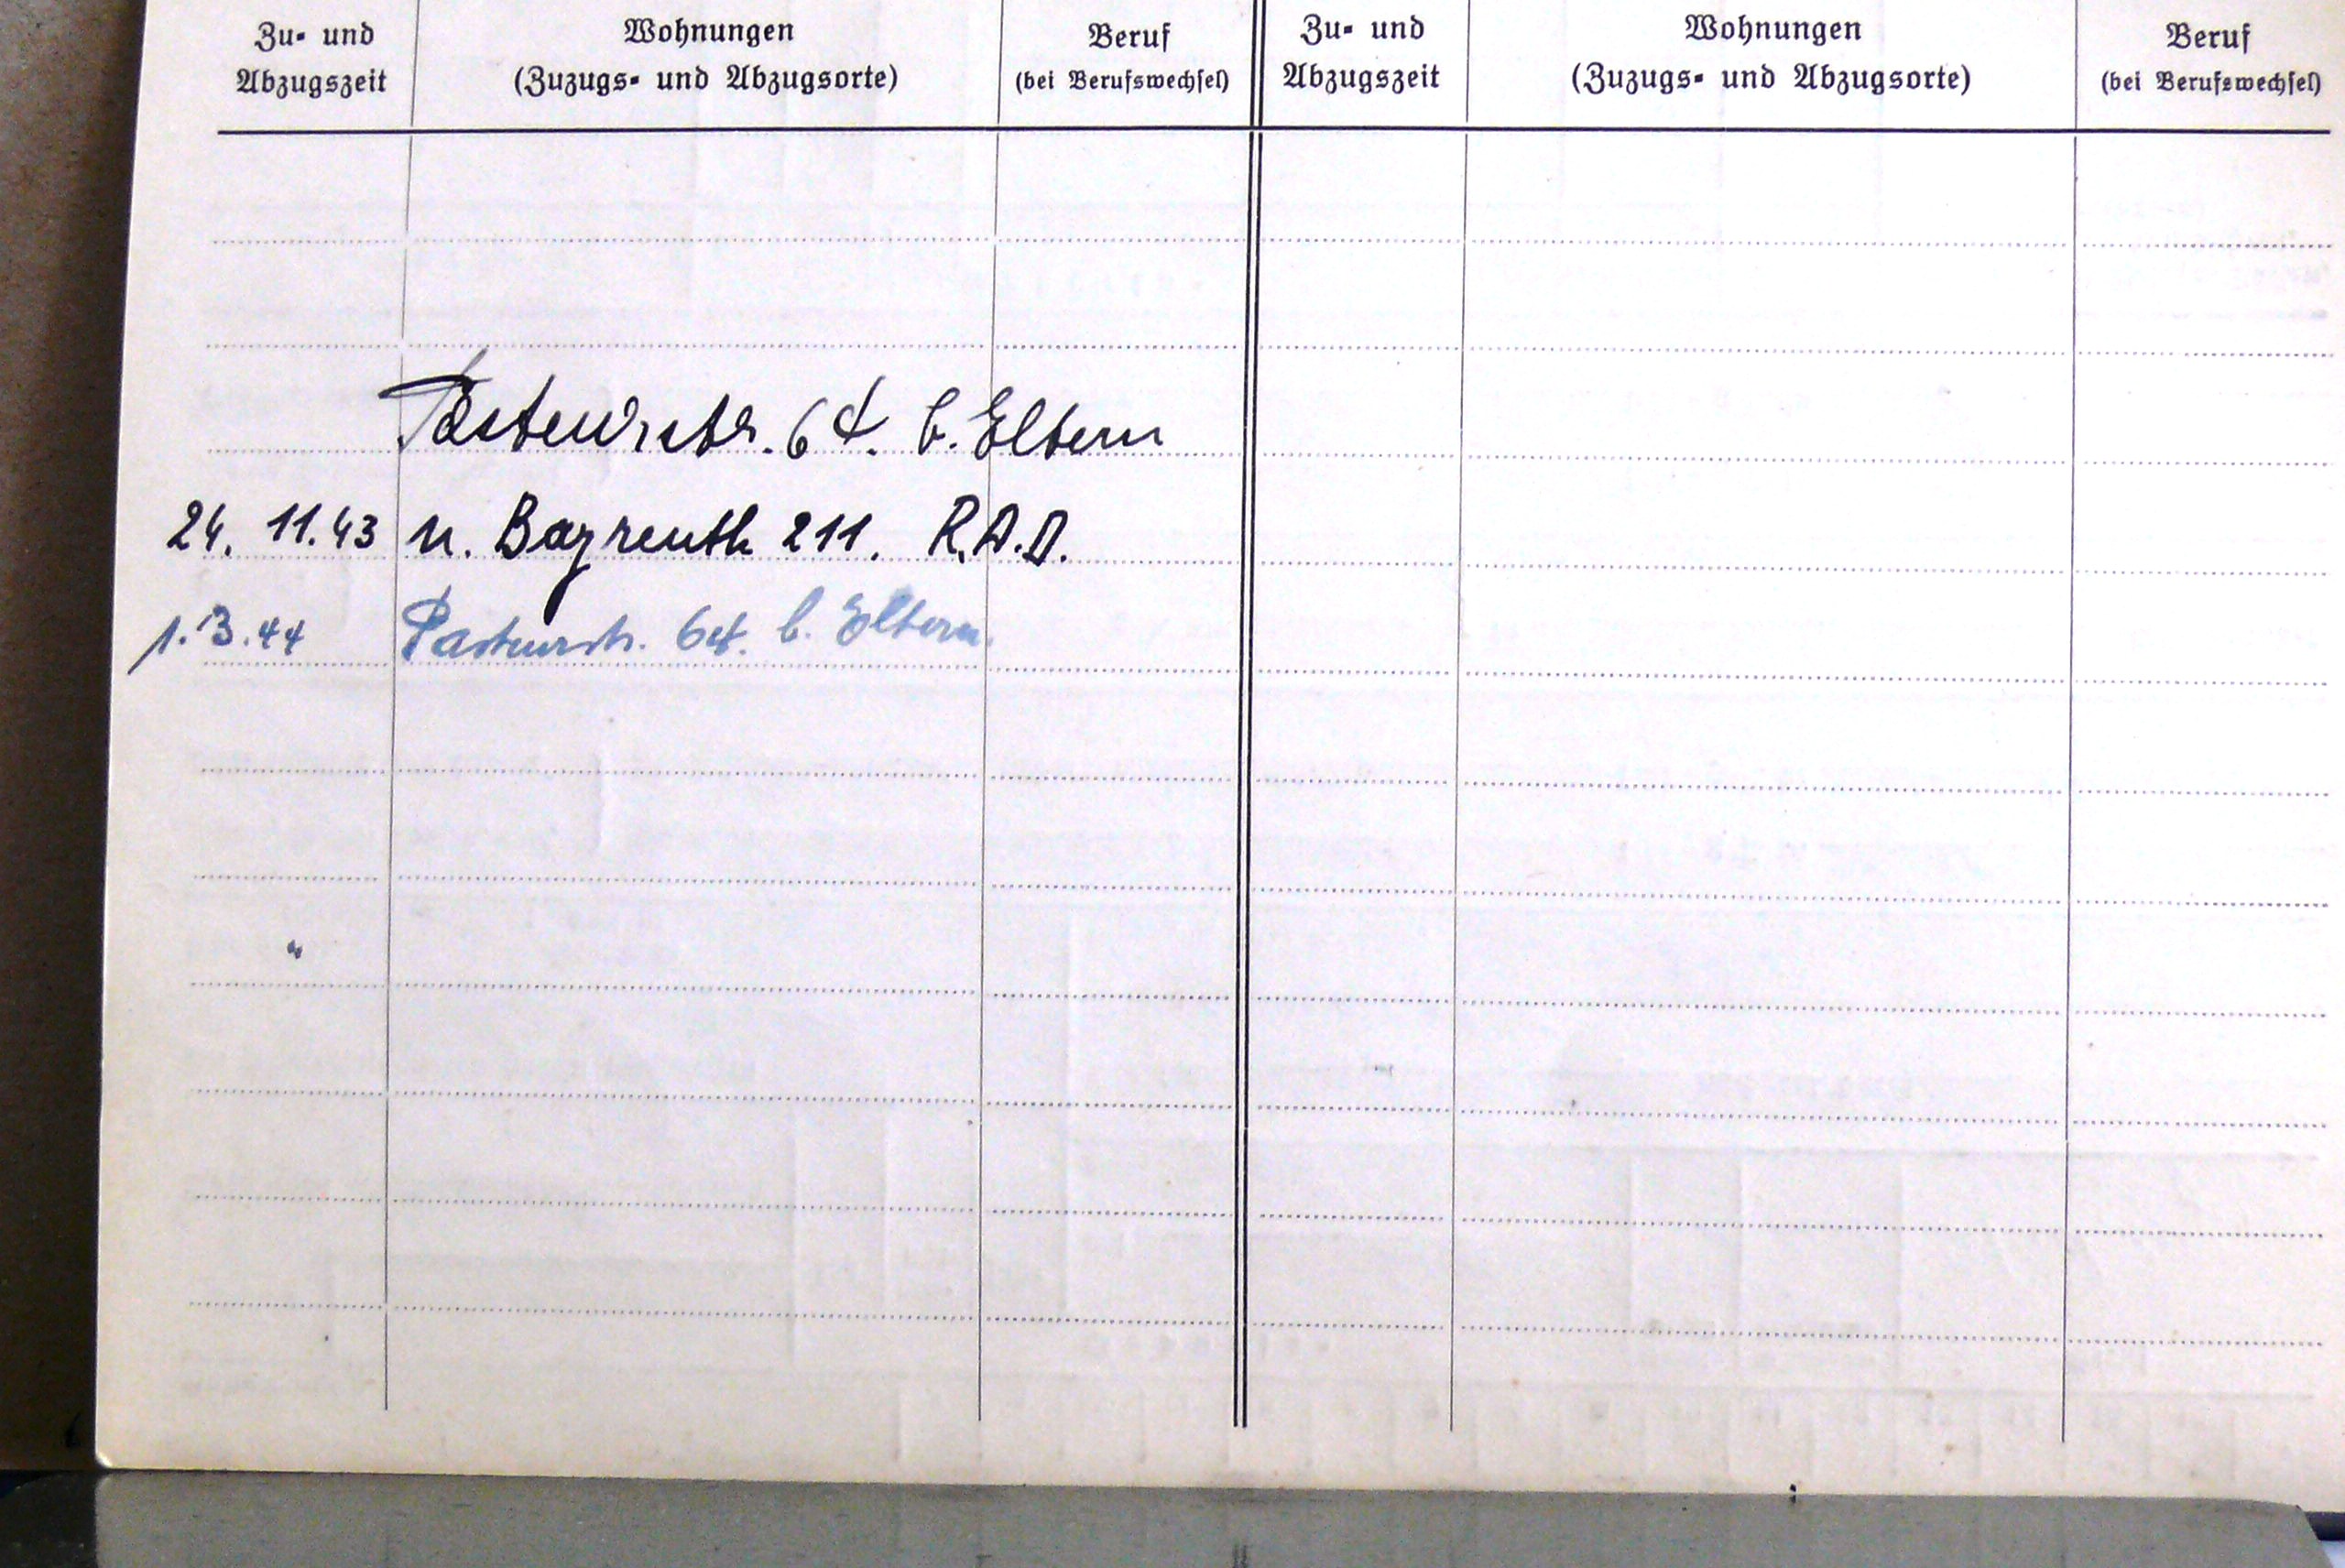 Zu- und Abzugszeit
Wohnungen (Zuzugs- und Abzugsorte)
Beruf (bei Berufswechsel)
Zu- und Abzugszeit
Wohnungen (Zuzugs- und Abzugsorte)
Beruf (bei Berufswechsel)
Pasteurstr. 64. b. Eltern
24. 11. 43 n. Bayreuth 211. R.A.D.
1. 3. 44 Pasteurstr. 64. b. Eltern.